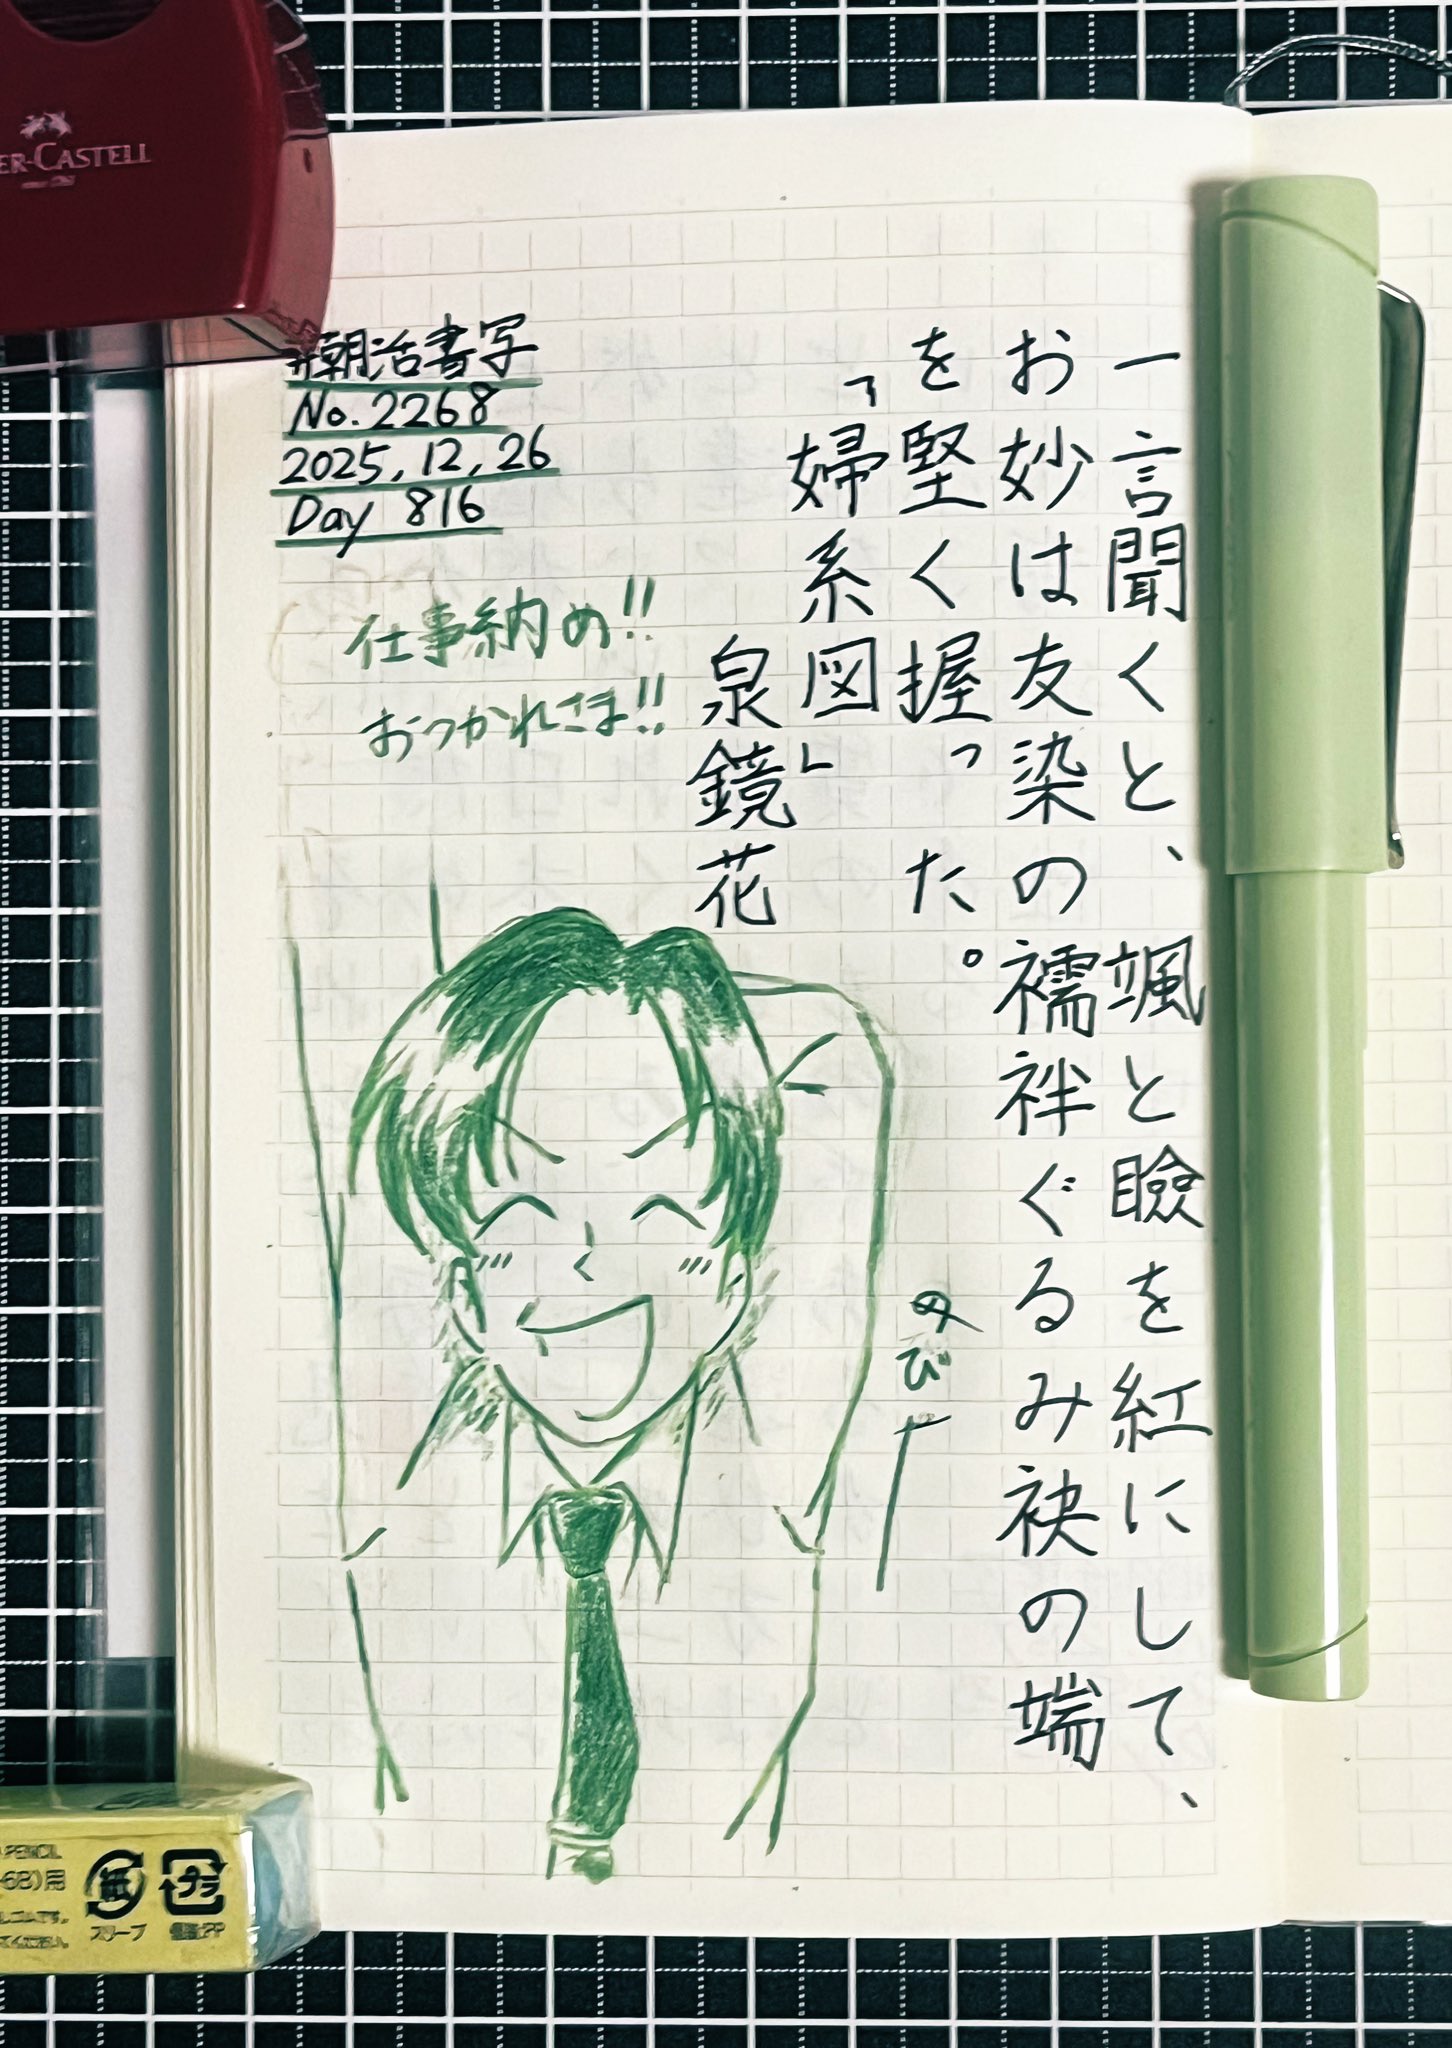 一言聞くと、颯と瞼を紅にして、
お妙は友染の襦袢ぐるみ袂の端
を堅く握った。
「婦系図」
泉鏡花
#朝活書写
No.2268
2025,12,26
Day 816
仕事納め!!
おつかれさま!!
のびー
ER-CASTELL
PENCIL
6B)用
紙
スリーブ
プラ